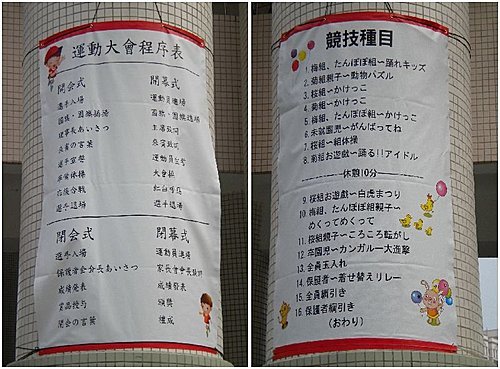 運動大會程序表
開会式
選手入場
国旗・園旗掲揚
理事長あいさつ
来賓の言葉
選手宣誓
準備体操
応援合戦
選手退場
開幕式
運動員進場
主席致詞
來賓致詞
運動員宣誓
大會操
選手退場
閉会式
選手入場
保護者会会長あいさつ
成績発表
賞品授与
閉会の言葉
閉幕式
運動員進場
家長會會長致詞
成績發表
頒獎
禮成
競技種目
1. 梅組、たんぽぽ組〜踊れキッズ
2. 菊組親子〜動物パズル
3. 桜組〜かけっこ
4. 菊組〜かけっこ
5. 梅組、たんぽぽ組〜かけっこ
6. 未就園児〜がんばってね
7. 桜組〜組体操
8. 菊組お遊戯〜踊る!!アイドル
休憩10分
9. 桜組お遊戯〜白虎まつり
10. 梅組、たんぽぽ組親子〜
めくってめくって
11. 桜組親子〜ころころ転がし
12. 卒園児〜カンガルー大進撃
13. 全員玉入れ
14. 保護者〜着せ替えリレー
15. 全員綱引き
16. 保護者綱引き
(おわり)